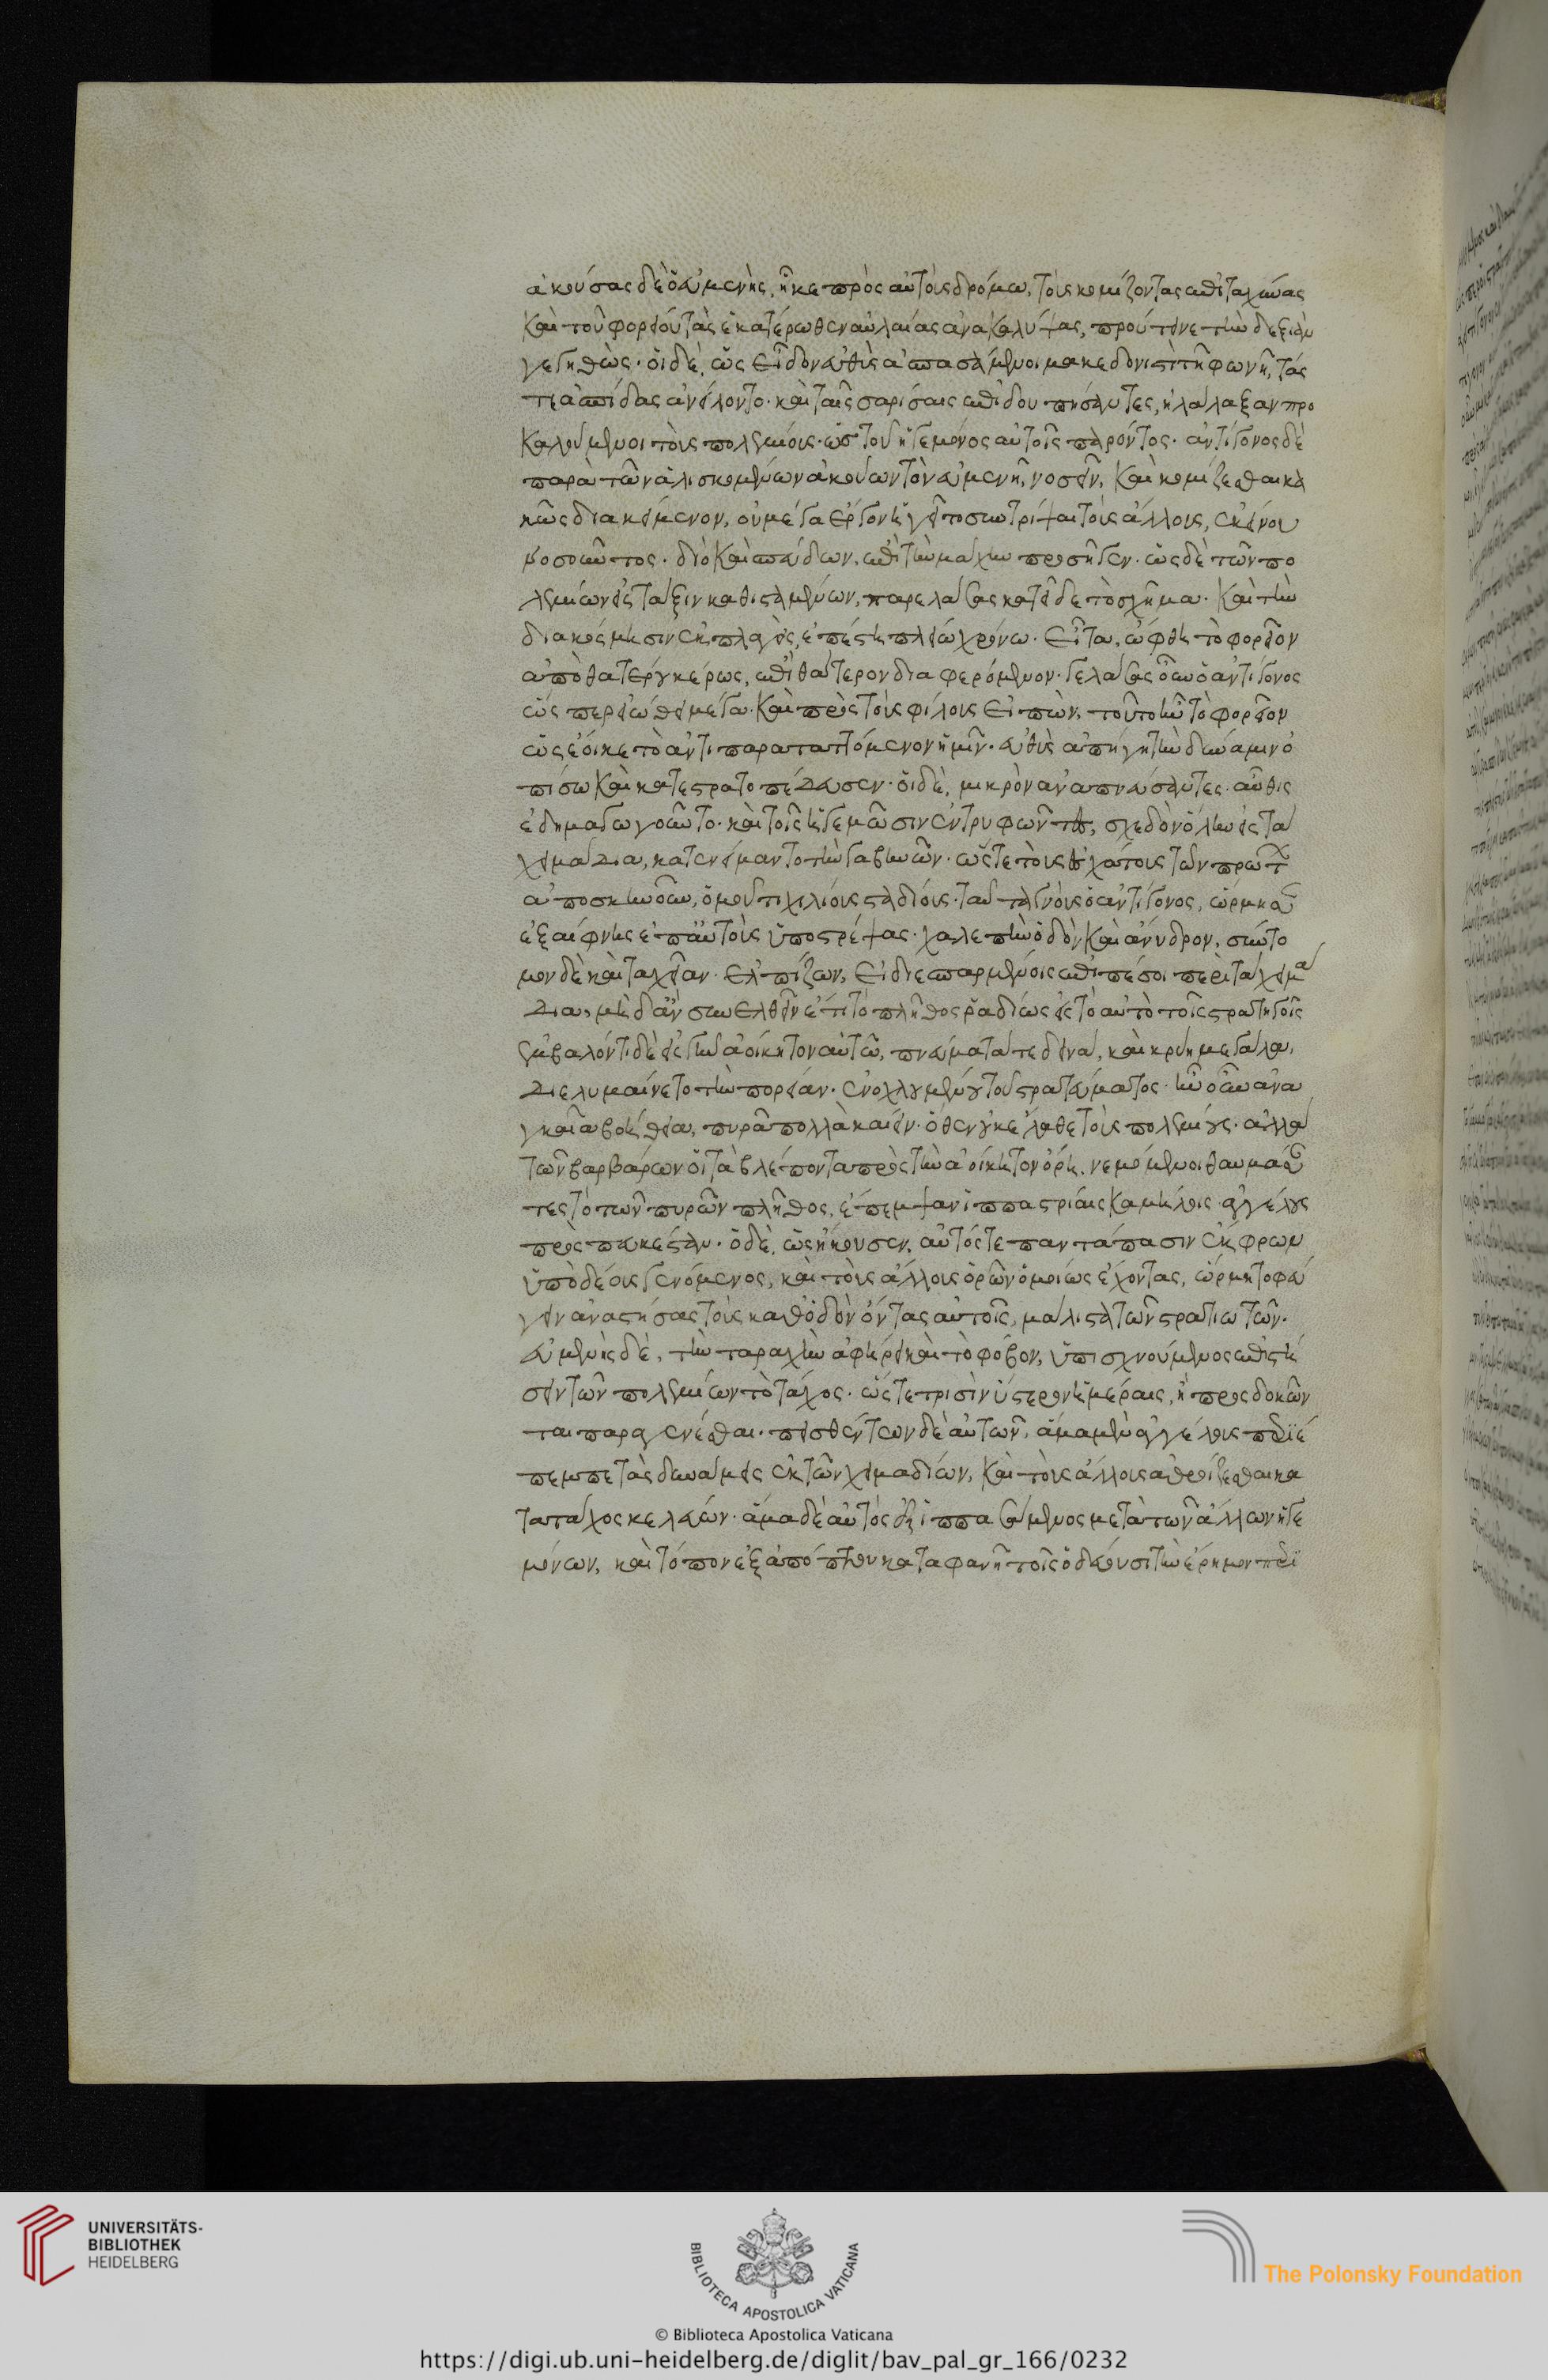 ἀκούσας δὲ ὁ εὐμενὴς, ἧκε πρὸς αὐτοὺς δρόμω, τοὺς κομίζοντας ἐπιταχύνας
καὶ τοῦ φορείου τὰς ἑκατέρωθεν αὐλαίας ἀνακαλύψας, προύτεινε τὴν δεξιὰν
γεγηθώς. οἱ δὲ, ὡς εἶδον εὐθὺς ἀσπασάμενοι μακεδονιστὶ τῆ φωνῆ, τάς
τε ἀσπίδας ἀνείλοντο. καὶ ταῖς σαρίσαις ἐπιδουπήσαντες, ἠλάλαξαν προ
καλούμενοι τοὺς πολεμίους. ὡς τοῦ ἡγεμόνος αὐτοῖς παρόντος. ἀντίγονος δὲ
παρὰ τῶν ἁλισκομένων ἀκούων τὸν εὐμενῆ, νοσεῖν, καὶ κομίζεσθαι κα
κῶς διακείμενον, οὐ μέγα ἔργον ἡγεῖτο συντρίψαι τοὺς ἄλλους, ἐκείνου
νοσοῦντος. διὸ καὶ σπεύδων, ἐπὶ τὴν μάχην προσῆγεν. ὡς δὲ τῶν πο
λεμίων εἰς τάξιν καθισταμένων, παρελάσας κατεῖδε τὸ σχῆμα. καὶ τὴν
διακόσμησιν ἐκπλαγεὶς, ἐπέστη πλείω χρόνω. εἶτα, ὤφθη τὸ φορεῖον
ἀπὸ θατέρου κέρως, ἐπὶ θάτερον διαφερόμενον. γελάσας οὖν ὁ ἀντίγονος
ὡς περ εἰώθει μέγα. καὶ πρὸς τοὺς φίλους εἰπὼν, τοῦτο ἦν τὸ φορεῖον
ὡς ἔοικε τὸ ἀντιπαραταττόμενον ἡμῖν. εὐθὺς ἀπήγη τὴν δύναμιν ὀ
πίσω καὶ κατεστρατοπέδευσεν. οἱ δὲ, μικρὸν ἀναπνεύσαντες. αὖθις
ἐδημαγωγοῦντο. καὶ τοῖς ἡγεμῶσιν ἐντρυφῶντες, σχεδὸν ὅλην εἰς τὰ
χειμάδια, κατενείμαντο τὴν γαβηνῶν. ὥστε τοὺς ἐσχάτους τῶν πρώτ
ἀποσκηνοῦν, ὁμοῦ τι χιλίους σταδίους. ταῦτα γνοὺς ὁ ἀντίγονος, ὥρμησεν
ἐξαίφνης ἐπ' αὐτοὺς ὑποστρέψας. χαλεπὴν ὁδὸν καὶ ἄνυδρον, σύντο
μον δὲ καὶ ταχεῖαν. ἐλπίζων, εἰ διεσπαρμένοις ἐπιπέσοι περὶ τὰ χειμά
δια, μὴ δ' ἂν συνελθεῖν ἔτι τὸ πλῆθος ῥαδίως εἰς τὸ αὐτὸ τοῖς στρατηγοῖς
ἐμβαλόντι δὲ εἰς γῆν ἀοίκητον αὐτῶ, πνεύματά τε δεινὰ, καὶ κρύη μεγάλα,
διελυμαίνετο τὴν πορείαν. ἐνοχλουμένου τοῦ στρατεύματος. ἦν οὖν ἀνα
γκαῖα βοήθεια, πυρὰ πολλὰ καίειν. ὅθεν οὐκ ἔλαθε τοὺς πολεμίους. ἀλλὰ
τῶν βαρβάρων οἱ τὰ βλέποντα πρὸς τὴν ἀοίκητον ὄρη. νεμόμενοι θαυμάσαν
τες τὸ τῶν πυρῶν πλῆθος, ἔπεμψαν ἱππαστρίαις καμήλοις ἀγγέλους
πρὸς πευκέσταν. ὁ δὲ, ὡς ἤκουσεν, αὐτός τε παντάπασιν ἔκφρων
ὑπὸ δέους γενόμενος, καὶ τοὺς ἄλλους ὁρῶν ὁμοίως ἔχοντας, ὥρμητο φεύ
γειν ἀναστήσας τοὺς καθ' ὁδὸν ὄντας αὐτοῖς, μάλιστα τῶν στρατιωτῶν.
εὐμενὴς δὲ, τὴν ταραχὴν ἀφήρει καὶ τὸ φόβον, ὑπισχνούμενος ἐπιστή
σειν τῶν πολεμίων τὸ τάχος. ὥστε τρισὶν ὕστερον ἡμέραις, ἢ προσδοκῶν
ται παραγενέσθαι. πεισθέντων δὲ αὐτῶν, ἅμα μὲν ἀγγέλους περιέ
πεμπε τὰς δυνάμεις ἐκ τῶν χειμαδίων, καὶ τοὺς ἄλλους ἀθροίζεσθαι κα
τὰ τάχος κελεύων. ἅμα δὲ αὐτὸς ἐξιππασάμενος μετὰ τῶν ἄλλων ἡγε
μόνων, καὶ τόπον ἐξ ἀπόπτου καταφανῆ τοῖς ὁδεύουσι τὴν ἔρημον περι
UNIVERSITÄTS-
BIBLIOTHEK
HEIDELBERG
BIBLIOTECA APOSTOLICA VATICANA
The Polonsky Foundation
© Biblioteca Apostolica Vaticana
https://digi.ub.uni-heidelberg.de/diglit/bav_pal_gr_166/0232